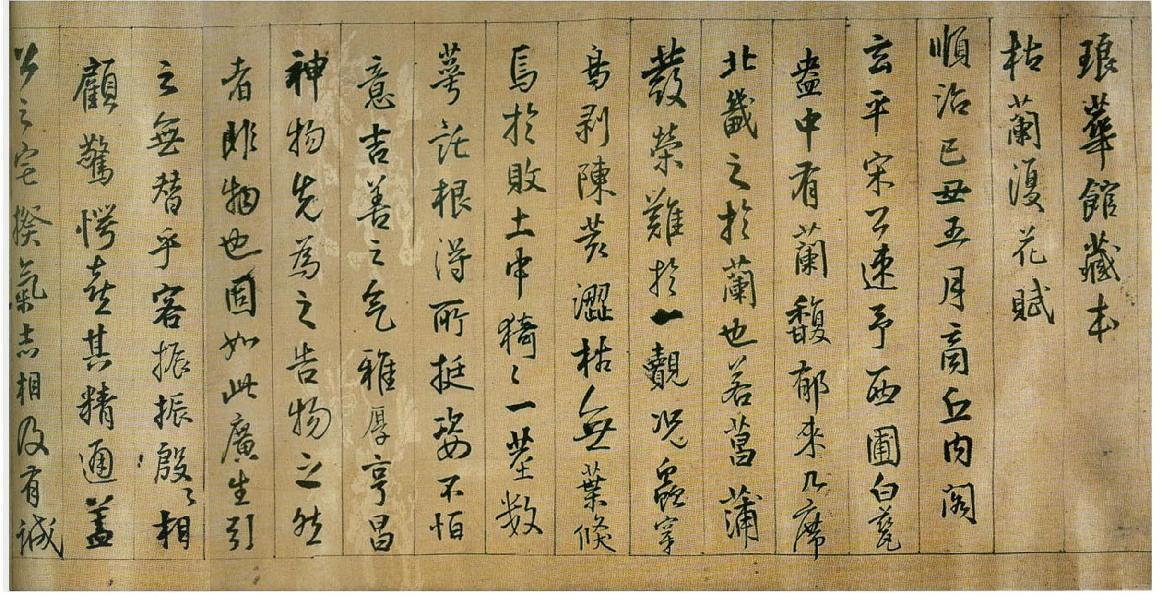 琅華館藏本
枯蘭復花賦
順治己丑五月商丘內閣
玄平宋公速予西圃白甆
盎中有蘭馥郁來几席
北畿之於蘭也若菖蒲
發榮難於一覿況蟲穿
鳥剥陳荄澀枯無葉倐
焉於敗土中猗〻一莖数
萼託根得所挺姿不怕
意吉善之气雅厚亨昌
神物先為之告物之然
者雎物也固如此廣生引
之無替乎客振振殷〻相
顧驚愕㐂其精通盖
公之宅揆氣志相及有誠